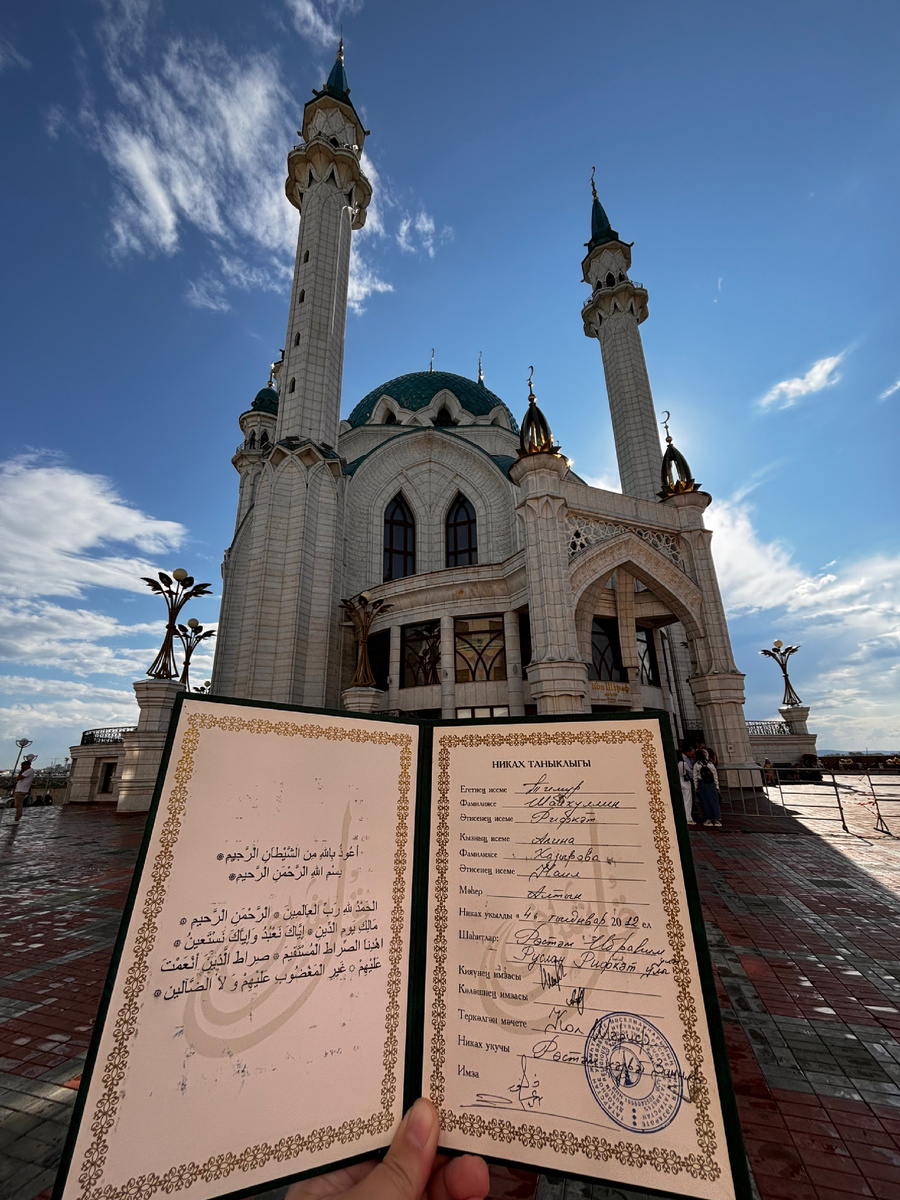 أعوذ بالله من الشيطان الرجيم
بسم الله الرحمن الرحيم
الحمد لله رب العالمين * الرحمن الرحيم *
مالك يوم الدين * إياك نعبد وإياك نستعين *
اهدنا الصراط المستقيم * صراط الذين أنعمت
عليهم * غير المغضوب عليهم و لا الضالين *
НИКАХ ТАНЫКЛЫГЫ
Егетнең исеме Тимур
Фамилиясе Шайхуллин
Әтисенең исеме Рифкат
Кызның исеме Алина
Фамилиясе
Әтисенең исеме Наил
Мәһер Алтын
Никах укылды « 4 » гыйнвар 2012 ел
Шаһитлар: Рөстәм
Руслан Рифкәт улы
Кияүнең имзасы
Кәләшнең имзасы
Теркәлгән мәчете Кол Шәриф
Никах укучы Рөстәм хәзрәт
Имза